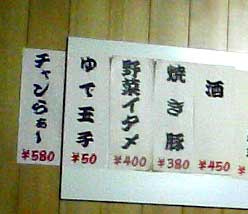 チャンらぁ〜
¥580
ゆで玉子
¥50
野菜イタメ
¥400
焼き豚
¥380
酒
¥450